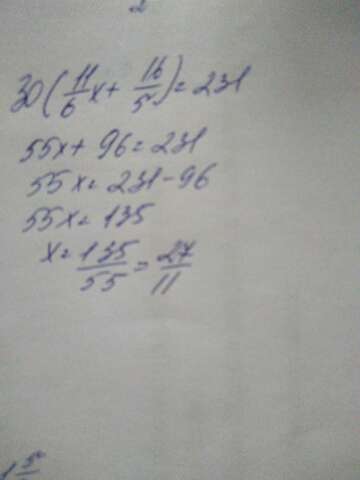 2
30(11/6 x + 16/5) = 231
55x + 96 = 231
55x = 231 - 96
55x = 135
x = 135/55 = 27/11